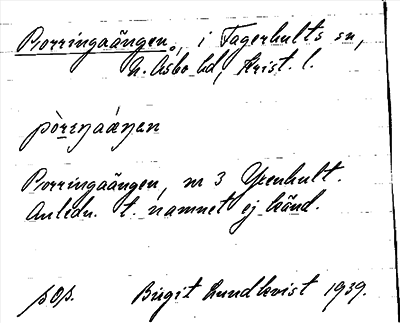 Porringaängen, i Fagerhults sn,
N. Åsbo hd, Krist. l.
Porringaängen, nr 3 Yxenhult.
Anledn. t. namnet ej känd.
pop. Birgit Lundkvist 1939.